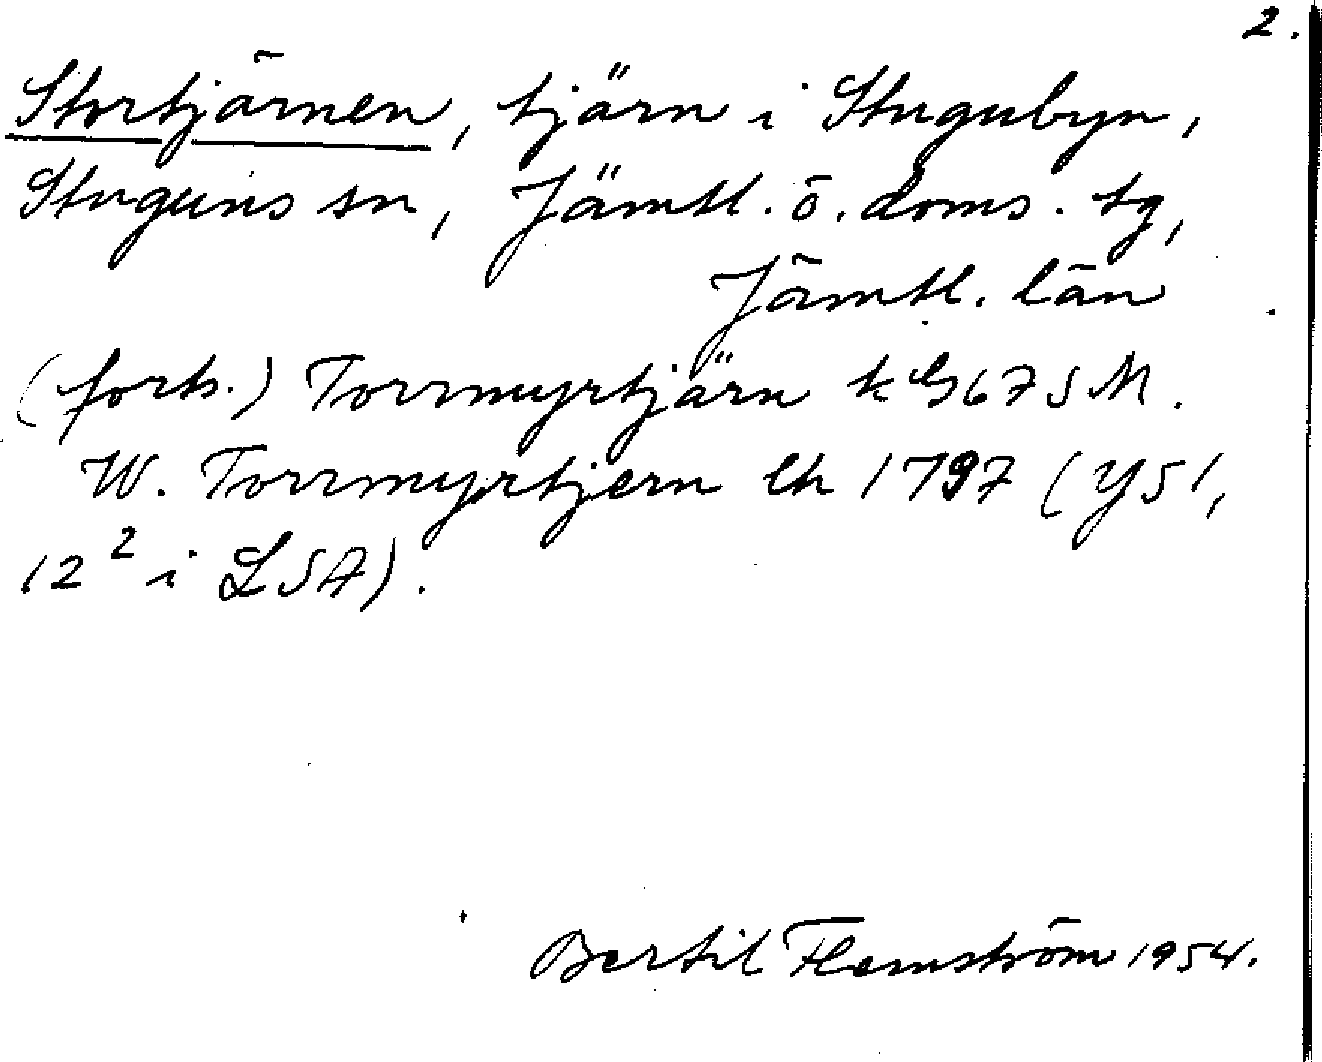 2.
Stortjärnen, tjärn i Stugubyn,
Stuguns sn, Jämtl. ö. doms. tg,
Jämtl. län
(forts.) Torrmyrtjärn k G 67 SM.
W. Torrmyrtjern lh 1797 (Y51,
12² i LSA).
Bertil Flemström 1954.